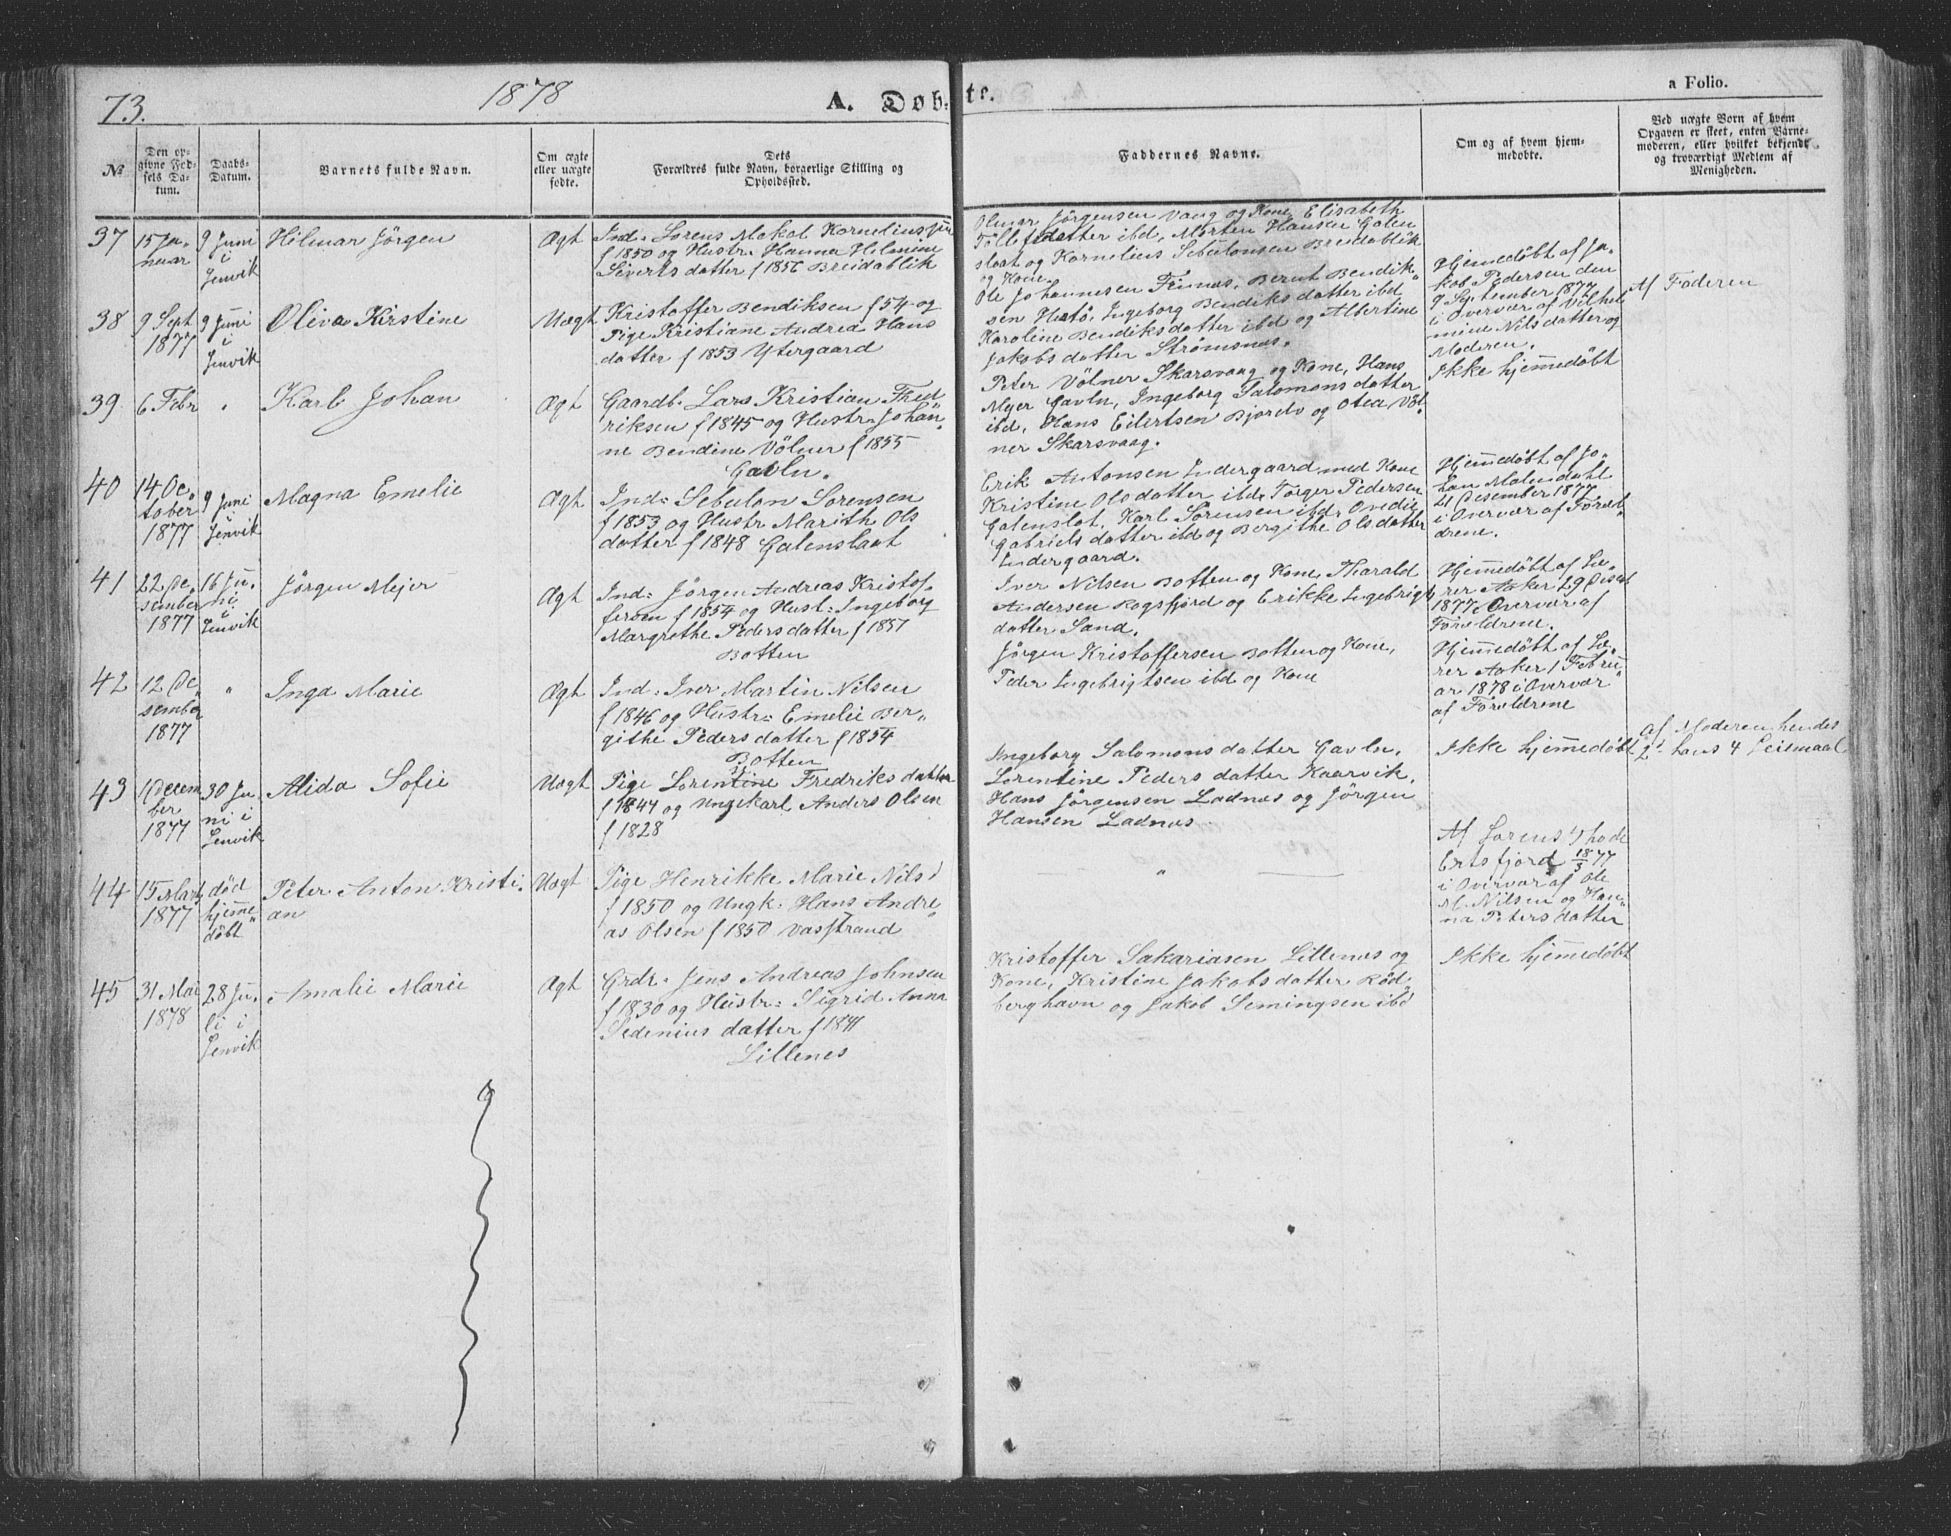 73.
1878
A. Døb-
te.
a Folio.
№
Den op-
givne Fød-
sels Da-
tum.
Daabs-
Datum.
Barnets fulde Navn.
Om ægte
eller uægte
fødte.
Dets
Forældres fulde Navn, borgerlige Stilling og
Opholdssted.
Faddernes Navne.
Om og af hvem hjem-
medøbte.
Ved uægte Born af hvem
Opgaven er skeet, enten Barne-
moderen, eller hvilket bekjendt
og troværdigt Medlem af
Menigheden.
37
15 Ja-
nuar
9 Juni
i
Lenvik
Hilmar Jörgen
Ægt
Ind: Sörens Kornelius
f 1850 og Hustr: Hanna
Siverts datter f 1856 Breidablik
Jörgensen Vang og Kone, Elisabeth
ibd, Morten Hansen Galen
slaat og Kornelius Sebulonsen Breidablik
og Kone.
38
9 Sept
1877
9 Juni
i
Lenvik
Oliva Kirstine
Uægt
Kristoffer Bendiksen f 54 og
Pige Kristiane Andrea Hans
datter f 1853 Ytergaard
Ole Johannesen Finnæs, Bernt Bendik-
sen Hestö, Ingeborg Bendiks datter ibd
Karoline Bendiks datter ibd og Albertine
Jakobs datter Strömsnæs.
Hjemmedöbt af Ja-
kob Pedersen den
9 September 1877
i Overvær af Vilhel
mine Nils datter og
Moderen.
Af Faderen
39
6 Febr
"
Karl Johan
Ægt
Gaardb. Lars Kristian Fred
riksen f 1845 og Hustr: Johan-
ne Bendine Völner f 1855
Gavln.
Peter Völner Skarsvaag og Kone, Hans
Mejer Gavln, Ingeborg Salomons datter
ibd, Hans Eilertsen Bjorelv og Otea Völ-
ner Skarsvaag.
Ikke hjemmedöbt
40
14 Oc-
tober
1877
9 Juni
i
Lenvik
Magna Emelie
Ægt
Ind: Sebulon Sörensen
f 1853 og Hustr Marith Ols
datter f 1848 Galenslaat
Erik Antonsen Indergaard med Kone
Kristine Ols datter ibd, Törger Pedersen
Galenslot, Karl Sörensen ibd, Ovedie
Gabriels datter ibd og Bergithe Ols datter
Indergaard.
Hjemmedöbt af Jo-
han
21 December 1877
i Overvær af Foræl-
drene.
41
22 De-
sember
1877
16 Ju-
ni
i
Lenvik
Jörgen Mejer
Ægt
Ind: Jörgen Andreas Kristof-
fersen f 1854 og Hust: Ingeborg
Margrethe Peders datter f 1857
Botten
Iver Nilsen Botten og Kone, Tharald
Andersen Rogsfjord og Erikke Ingebrigts
datter Sand.
Hjemmedöbt af Læ-
rer Aaker 29 Desbr
1877 i Overvær af
Foreldrene.
42
12 De
sember
1877
"
Inga Marie
Ægt
Ind: Iver Martin Nilsen
f 1846 og Hustr: Emelie Ber-
githe Peders datter f 1854
Botten
Jörgen Kristoffersen Botten og Kone,
Peder Ingebrigtsen ibd og Kone
Hjemmedöbt af Læ-
rer Aaker 1 Febru
ar 1878 i Overvær
af Foreldrene
43
Decem
ber
1877
30 Ju-
ni i
Lenvik
Alida Sofie
Uægt
Pige Lorentine Fredriks datter
f 1847 og Ungkarl Anders Olsen
f 1828
Ingeborg Salomons datter Gavln,
Lorentine Peders datter Kaarvik,
Hans Jörgensen Ladnæs og Jörgen
Hansen Ladnæs
Ikke hjemmedöbt
af Moderen hendes
2det hans 4 Leiermaal
44
15 Marts
1877
död
hjemme
döbt
Peter Anton Kristi-
an
Uægt
Pige Henrikke Marie Nilsd
f 1850 og Ungk: Hans Andre-
as Olsen f 1850 Vasstrand
"
Af Lorens Thode
Ertsfjord 18/3 77
i Overvær af Ole
M. Nilsen og Han-
na Peters datter
45
31 Mai
1878
28 Ju-
li i
Lenvik
Amalie Marie
Ægt
Grdr. Jens Andreas Johnsen
f 1830 og Hustr: Sigrid Anna
Sedenius datter f 1841
Lillenes
Kristoffer Sakariasen Lillenæs og
Kone, Kristine Jakobs datter Röd-
berghavn og Jakob Semingsen ibd
Ikke hjemmedöbt